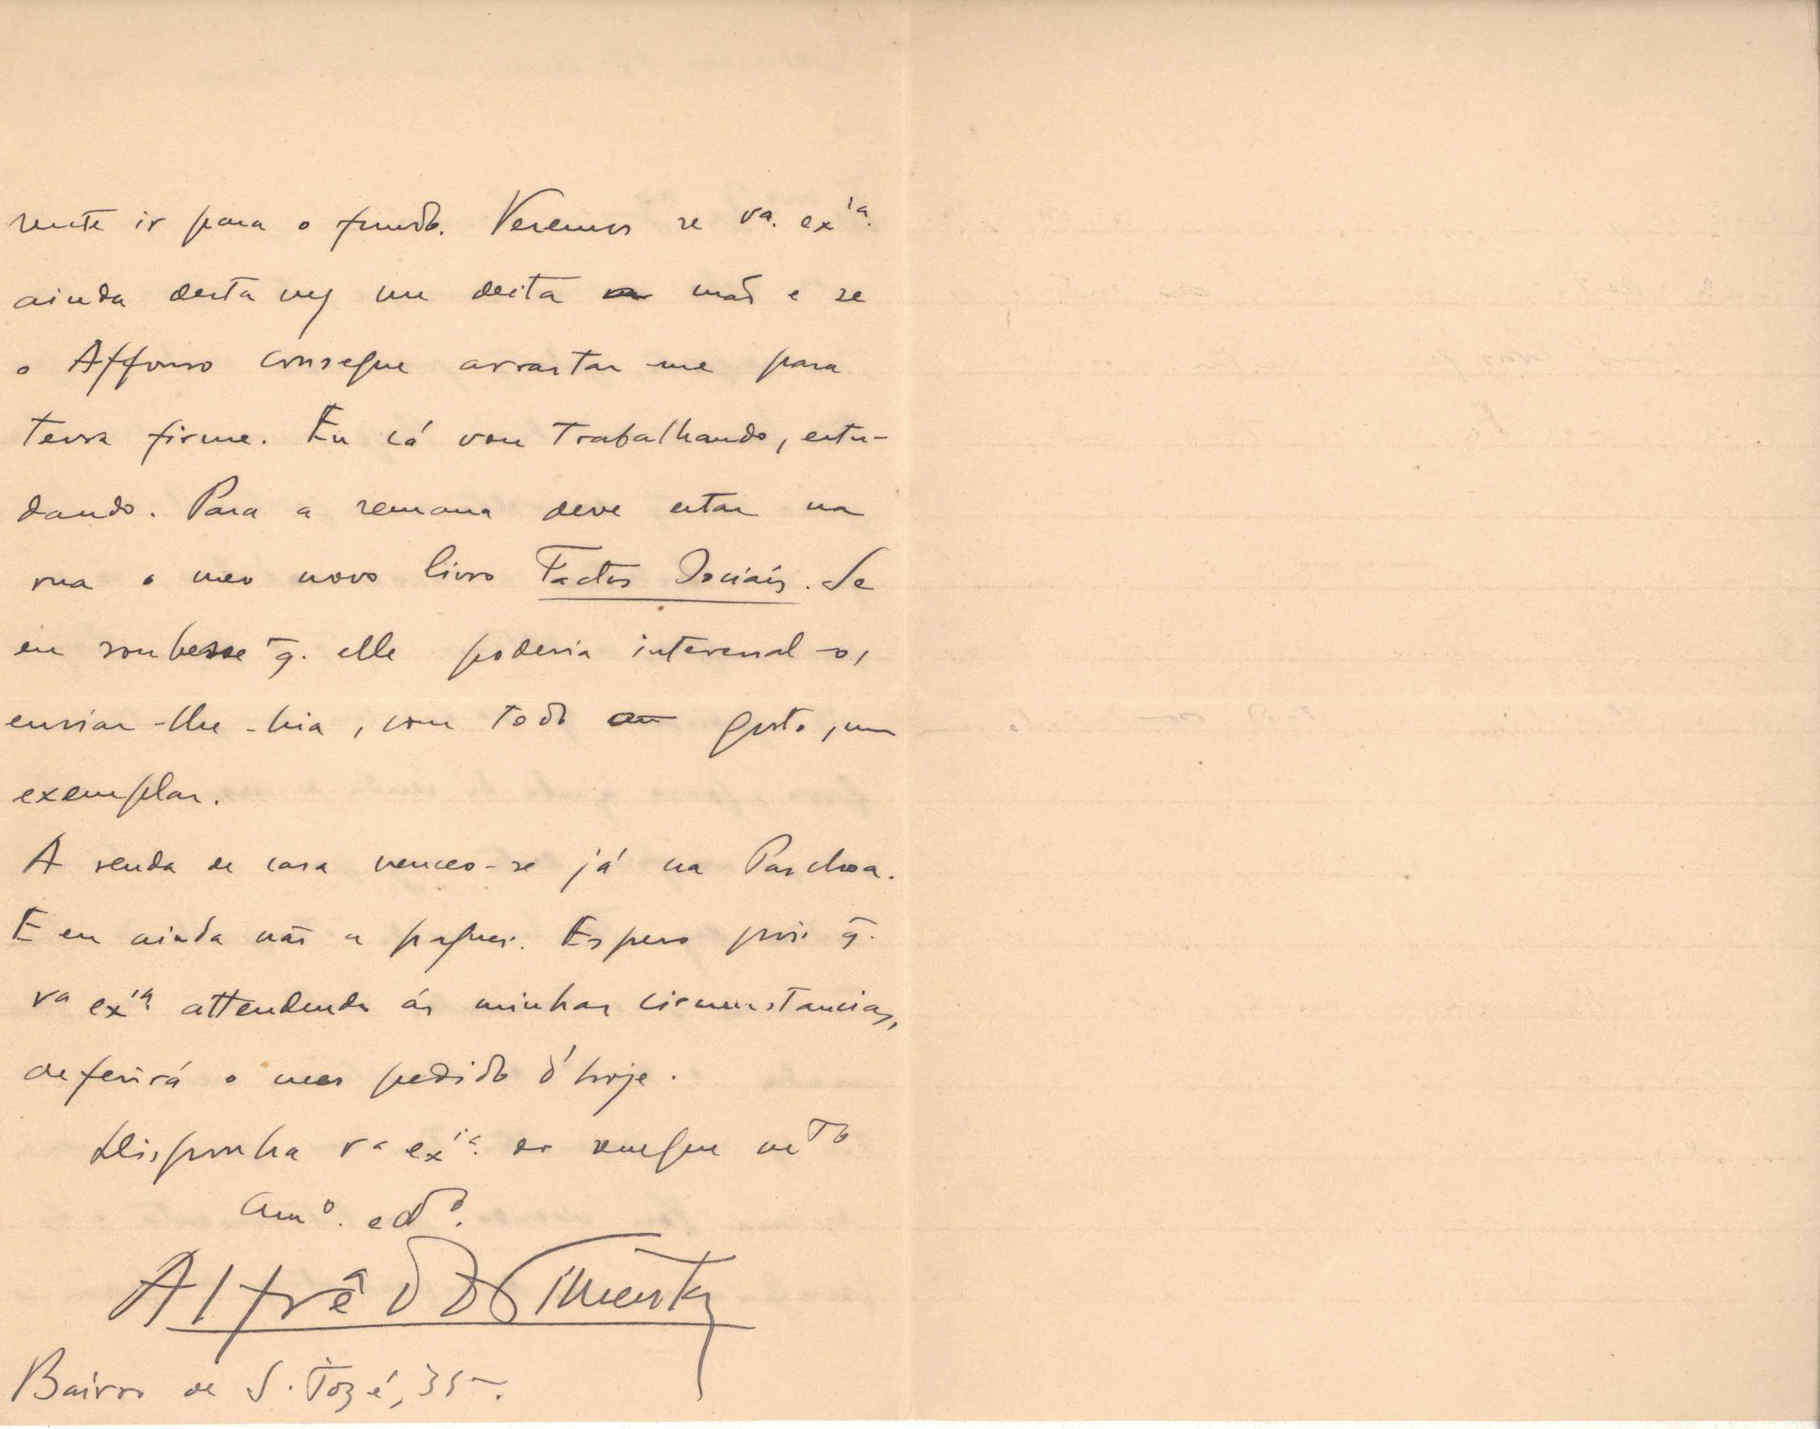 sente ir para o fundo. Veremos se vª. exⁱª.
ainda desta vez me deita a mão e se
o Affonso consegue arrastar-me para
terra firme. Eu cá vou trabalhando, estu-
dando. Para a semana deve estar na
rua o meu novo livro Factos Sociáis. Se
eu soubesse q̃. elle poderia interessal-o,
enviar-lhe-hia, com todo o gosto, um
exemplar.
A renda de casa venceo-se já na Paschoa.
E eu ainda não a paguei. Espero pois q̃.
vª exⁱª. attendendo ás minhas circumstancias,
deferirá o meu pedido d'hoje.
Disponha vª exⁱª. de quem é mᵗᵒ
amº. e obdº.
Alfrêdo Pimenta
Bairro de S. Jozé, 35-.